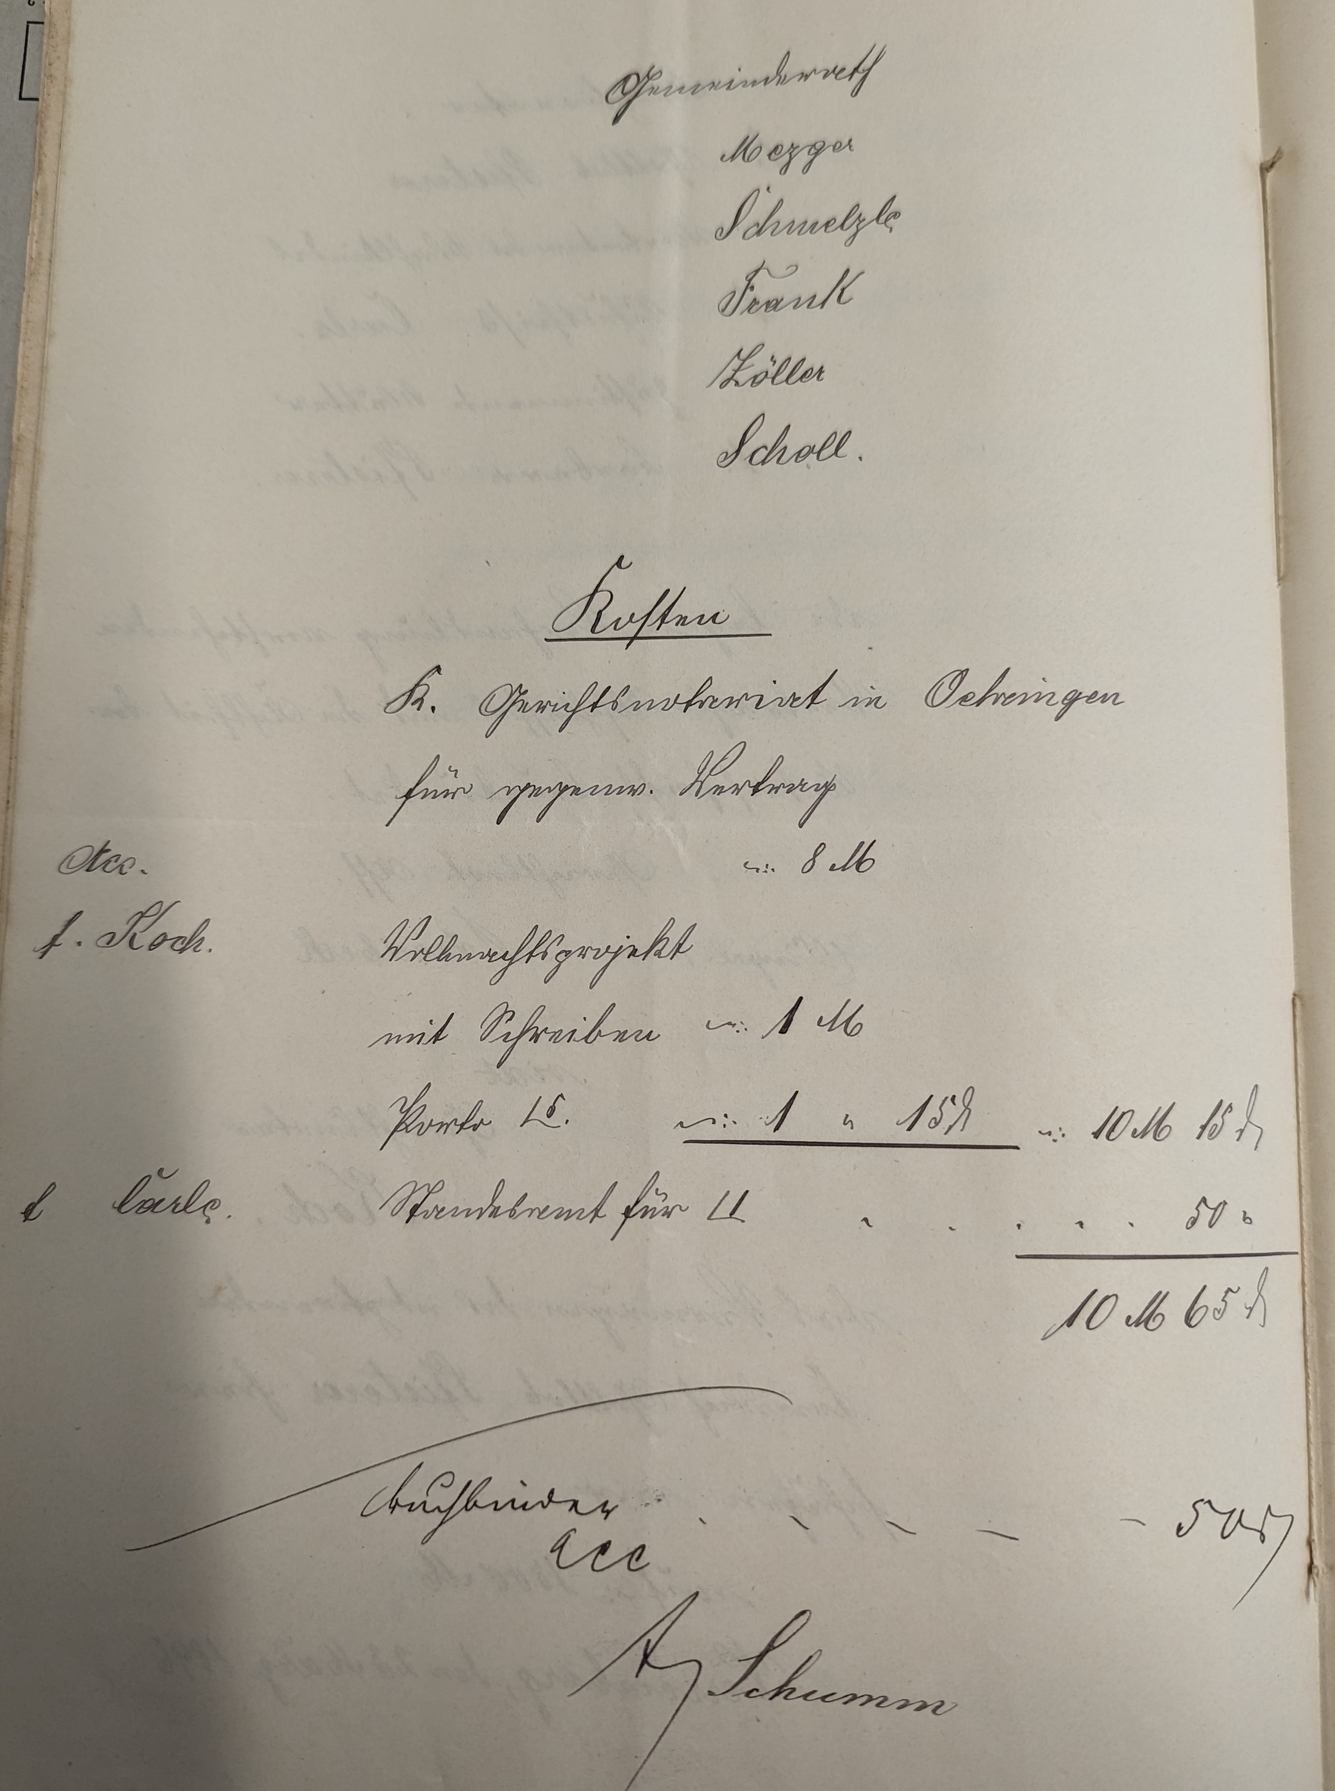 Gemeinderath
Mezger
Schmelzle
Frank
Zöller
Scholl.
Kosten
K. Gerichtsnotariat in Oehringen
für gegenw. Vertrag
Acc. 8 M
t. Koch. Vollmachtsprojekt
mit Schreiben 1 M
Porto 1 " 15 ₰ 10 M 15 ₰
t Carle. Standesamt für 50 "
10 M 65 ₰
Buchbinder 50 ₰
acc
Schumm